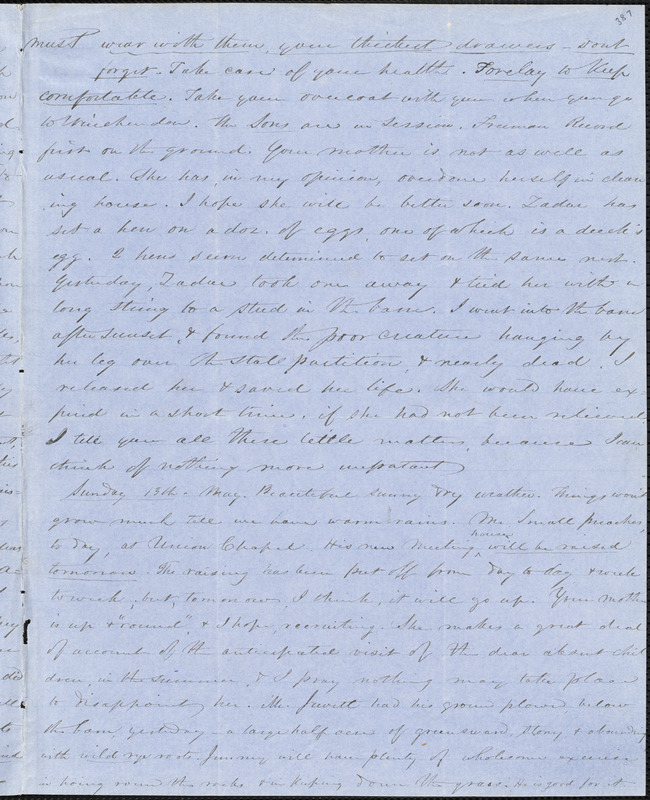 387
must wear with them, your thickest drawers - don't
forget. Take care of your health. Forelay to keep
comfortable. Take your overcoat with you when you go
to Winchendon. The Sons are in Session. Freeman Record
first on the ground. Your mother is not as well as
usual. She has, in my opinion, overdone herself in clean
ing house. I hope she will be better soon. Zadoc has
set a hen on a doz. of eggs, one of which is a duck's
egg. 2 hens seem determined to set on the same nest.
Yesterday, Zadoc took one away & tied her with a
long string to a stud in the barn. I went into the barn
after sunset, & found the poor creature hanging by
her leg over the stall partition, & nearly dead. I
released her & saved her life. She would have ex-
pired in a short time, if she had not been relieved.
I tell you all these little matters, because I can
think of nothing more important
Sunday 13th. May. Beautiful sunny dry weather. Things won't
grow much till we have warm rains. Mr Small preaches,
to day, at Union Chapel. His new Meeting house will be raised
tomorrow. The raising has been put off from day to day & week
to week, but, tomorrow, I think, it will go up. Your mother
is up & "round", & I hope, recruiting. She makes a great deal
of account of the anticipated visit of the dear absent chil
dren, in the summer, & I pray nothing may take place
to disappoint her. Mr Jewett had his ground plowed, below
the barn, yesterday - a large half acre of greensward, stony & abounding
with wild rye roots. Jimmy will have plenty of wholesome exercise
in hoing round the rocks & in keeping down the grass. He is good for it